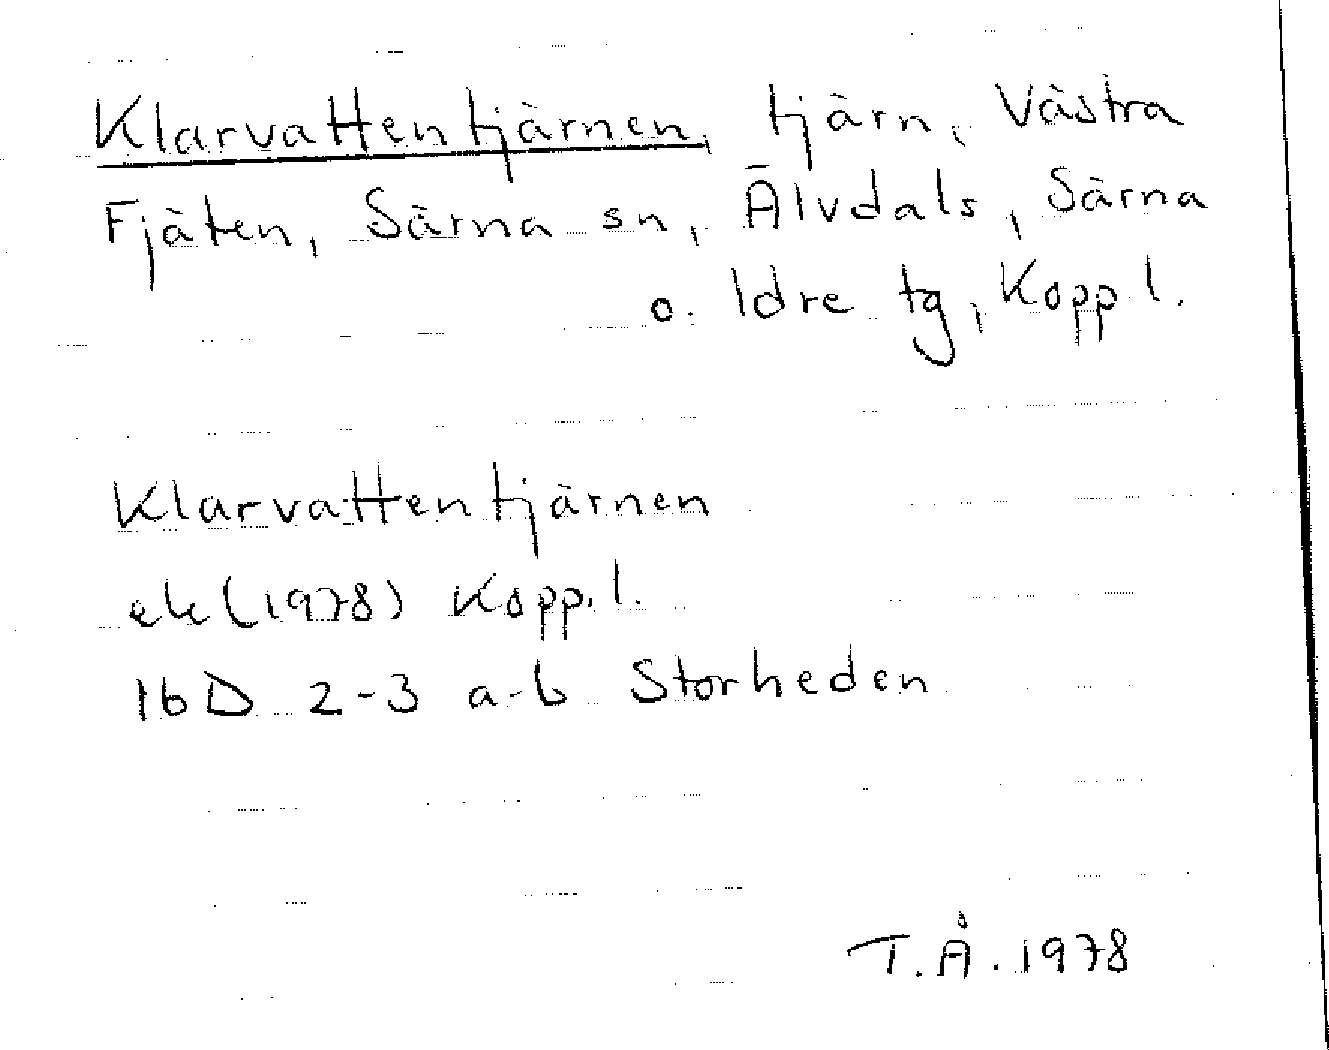 Klarvattentjärnen, tjärn, Västra
Fjäten, Särna sn, Älvdals, Särna
o. Idre tg, Kopp l.
Klarvattentjärnen
ek (1978) Kopp. l.
16 D 2-3 a-b Storheden
T.Å. 1978